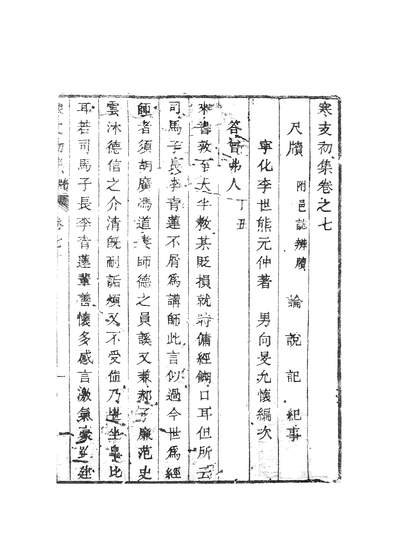 寒支初集卷之七
尺牘 附邑誌辨牘 論 說 記 紀事
寧化李世熊元仲著 男向旻允懷編次
答曾弗人 丁丑
來書敦至大半教某貶損就時傭經餬口耳但所云
司馬子長李青蓮不屑為講師此言似過今世為經
師者須胡廣馮道婁師德之員諼又兼邴子廉范史
雲沐德信之介清旣耐詬煩又不愛值乃堪坐臯比
耳若司馬子長李青蓮輩善懷多感言激氣豪
寒支初集 卷七 一